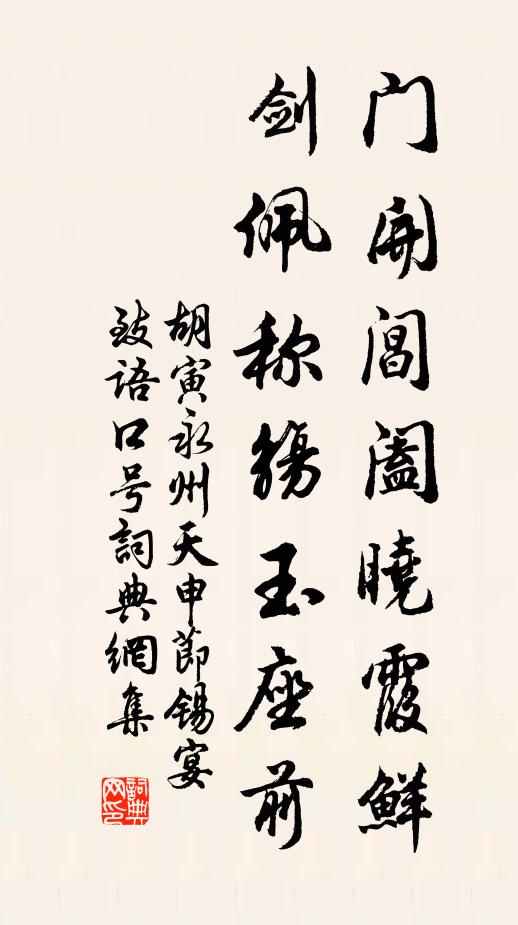 门开阊阖晓霞鲜
剑佩称觞玉座前
胡寅永州天申节锡宴
致语口号詞典網集
詞典網印